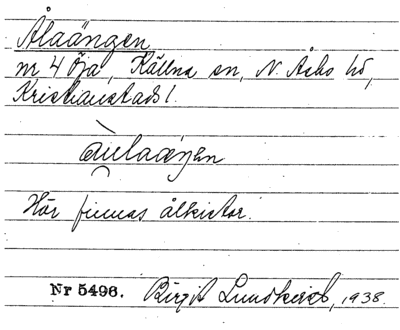 Ålaängen
nr 4 Öja, Källna sn, N. Åsbo hd,
Kristianstads l.
àulaäŋen
Här finnas ålkistor.
Nr 5496. Birgit Lundkvist, 1938.